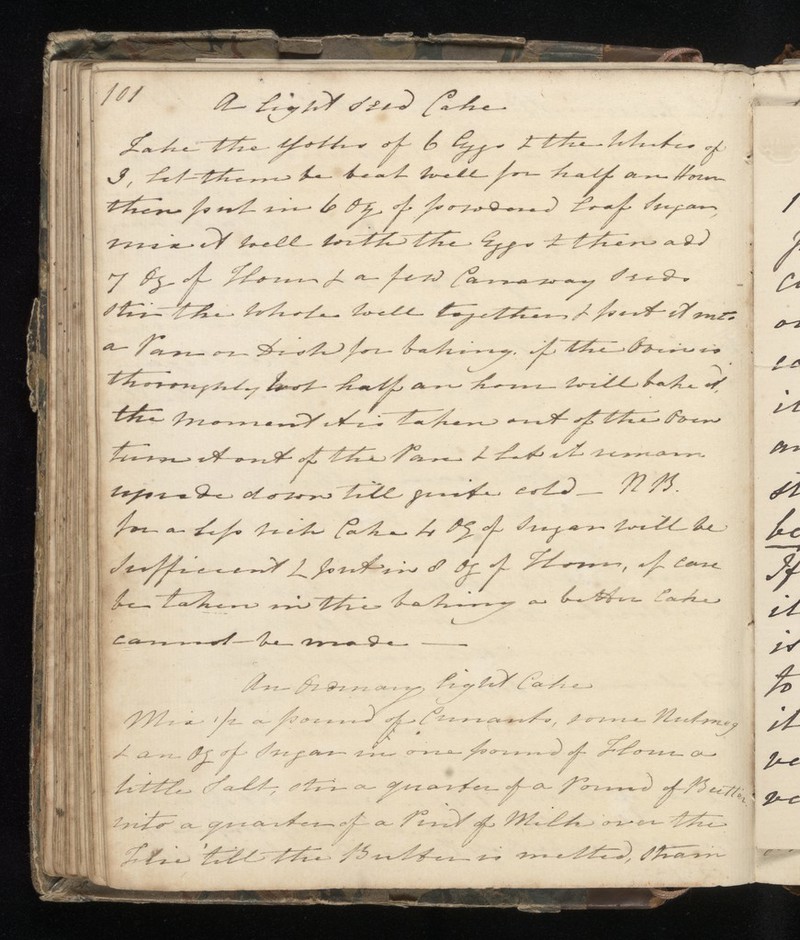 101
A light seed Cake
Take the Yolks of 6 Eggs & the Whites of
3, let them be beat well for half an Hour
then put in 6 Oz of powdered loaf Sugar,
mix it well with the Eggs & then add
7 Oz of Flour & a few Carraway seeds
stir the whole well together & put it into
a Pan or Dish for baking. if the Oven is
thoroughly hot half an hour will bake it,
the moment it is taken out of the Oven
turn it out of the Pan & let it remain
upside down till quite cold — N B.
for a less rich Cake 4 Oz of Sugar will be
sufficient & put in 8 Oz of Flour, if care
be taken in the baking a better Cake
cannot be made —
An Ordinary light Cake
Mix 1/2 a pound of Currants, some Nutmeg
& an Oz of Sugar in one pound of Flour a
little Salt, stir a quarter of a Pound of Butter
into a quarter of a Pint of Milk over the
Fire 'till the Butter is melted, strain